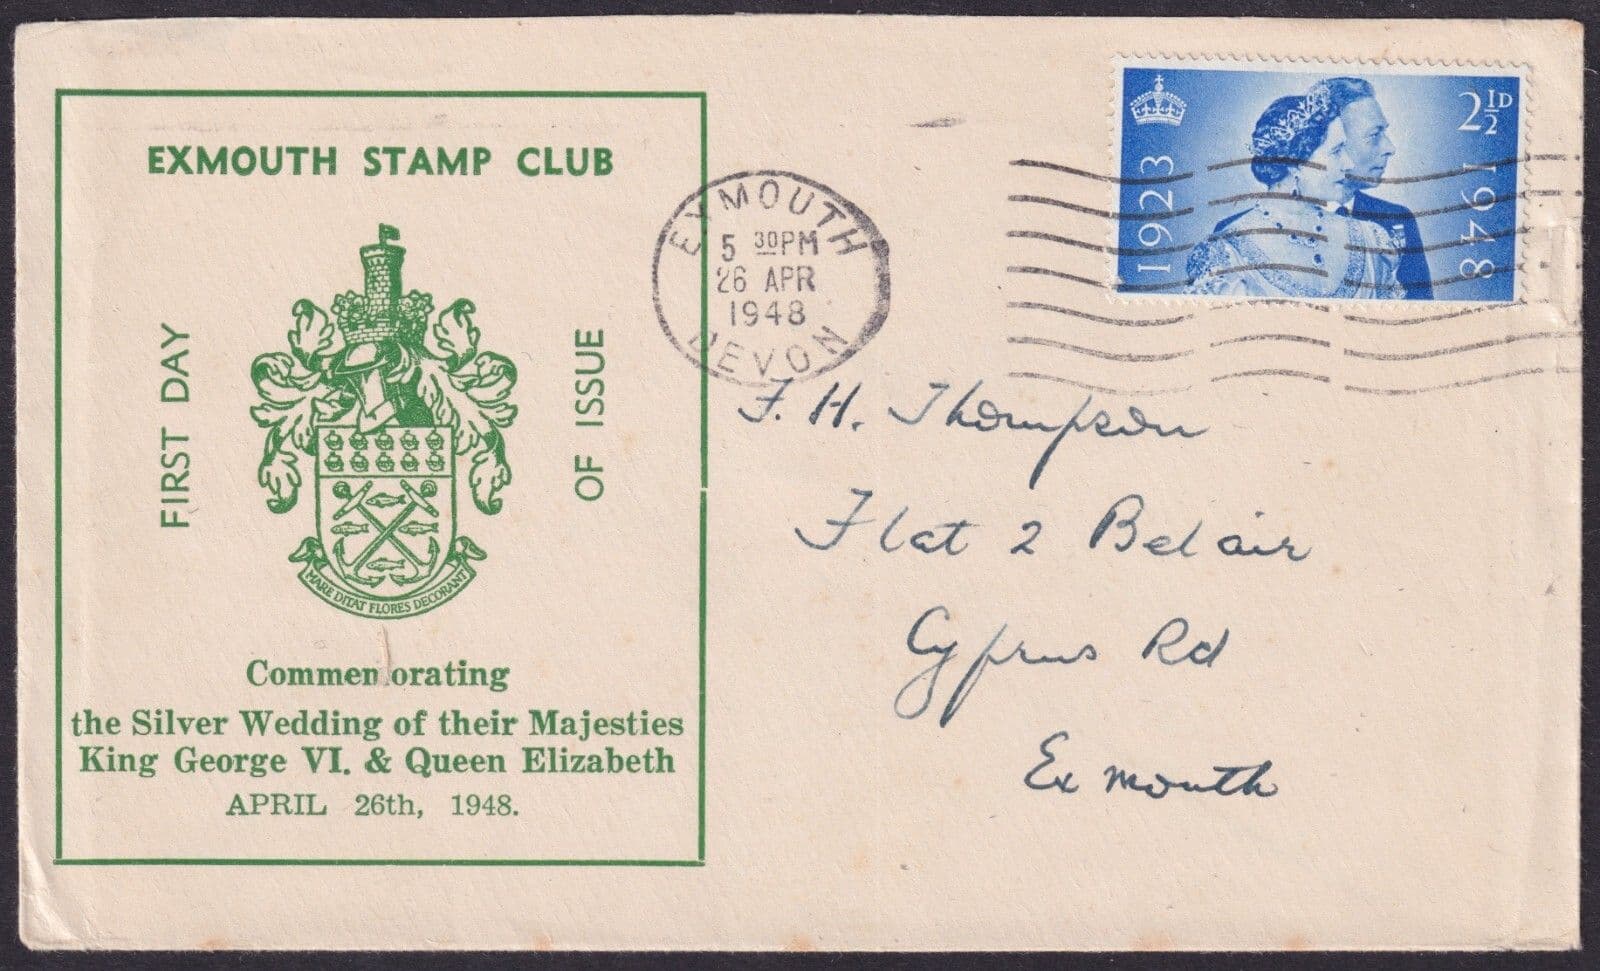 EXMOUTH STAMP CLUB
FIRST DAY
OF ISSUE
MARE DITAT FLORES DECORANT
Commemorating
the Silver Wedding of their Majesties
King George VI. & Queen Elizabeth
APRIL 26th, 1948.
EXMOUTH
5 30PM
26 APR
1948
DEVON
1923
2½D
1948
F. H. Thompson
Flat 2 Belair
Cyprus Rd
Exmouth